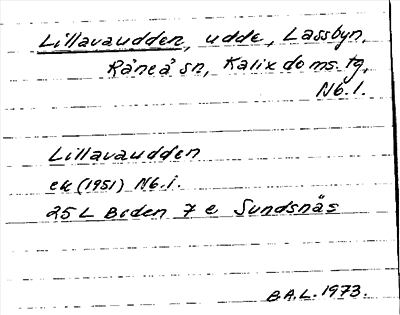 Lillavaudden, udde, Lassbyn,
Råneå sn, Kalix doms. tg,
Nb. l.
Lillavaudden
ek (1951) Nb. i.
25 L Boden 7 e Sundsnäs
B.A.L. 1973.